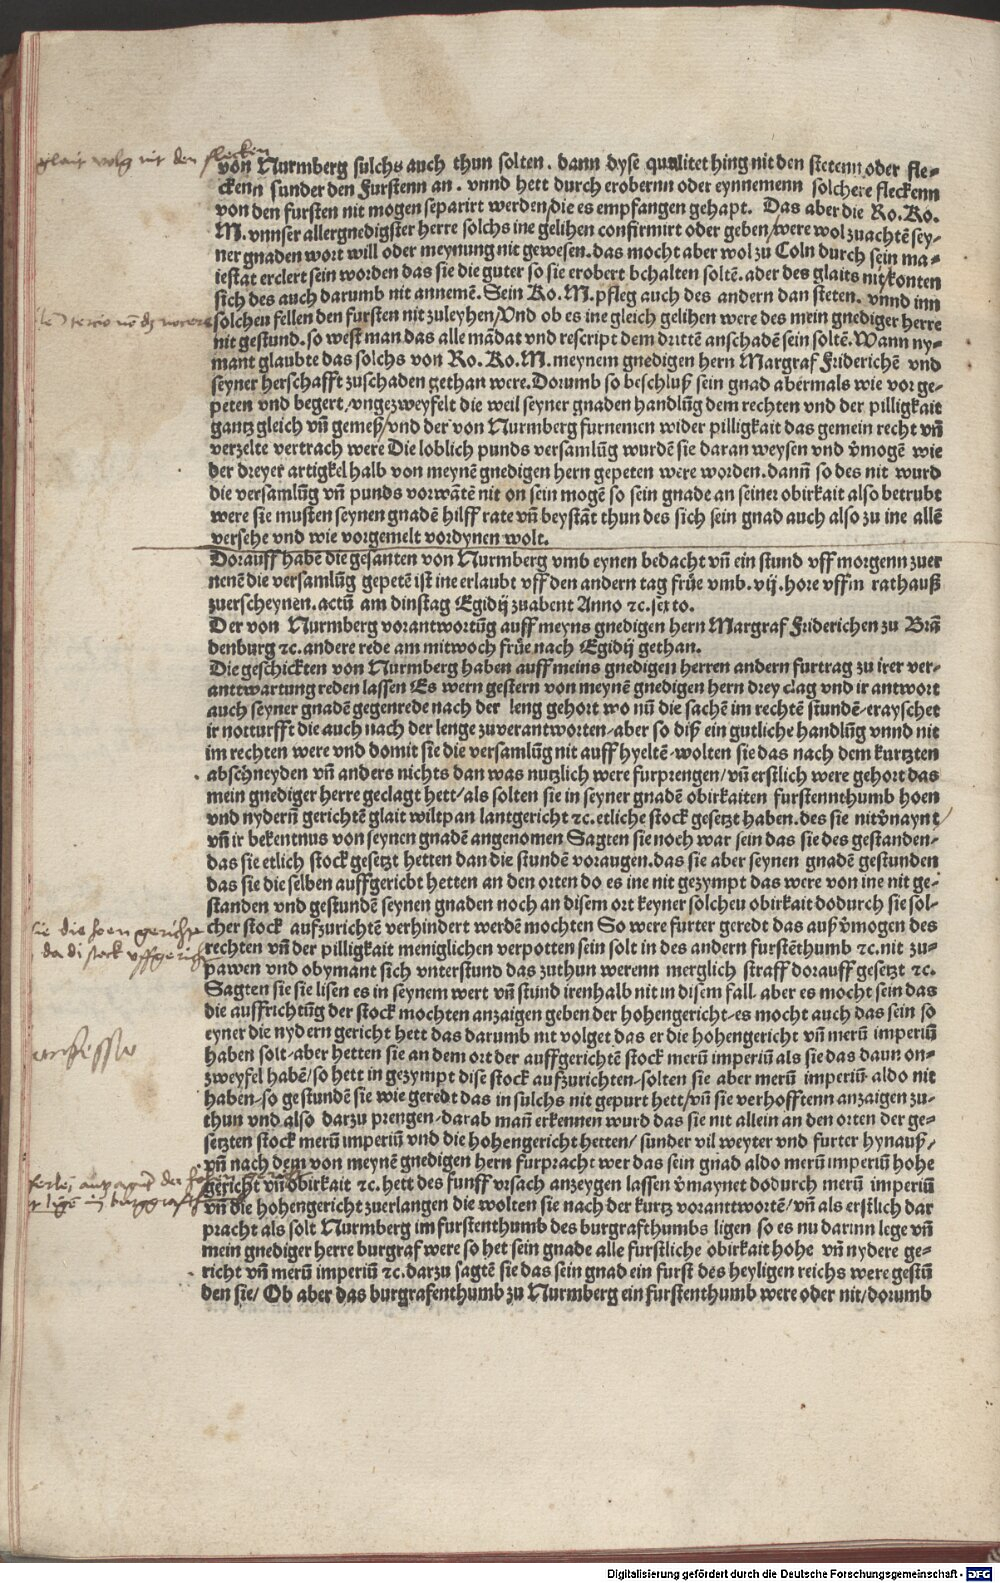 glait volg nit den flecken
von Nurmberg sulchs auch thun solten. dann dyse qualitet hing nit den stetenn oder fle-
ckenn sunder den Furstenn an. vnnd hett durch erobernn oder eynnemenn solchere fleckenn
von den fursten nit mogen separirt werden/die es empfangen gehapt. Das aber die Ro. Ko.
M. vnnser allergnedigster herre solchs ine gelihen confirmirt oder geben/were wol zuachtē sey-
ner gnaden wort will oder meynung nie gewesen. das mocht aber wol zu Coln durch sein ma-
iestat erclert sein worden das sie die guter so sie erobert bchalten soltē. ader des glaits nit/konten
sich des auch darumb nit annemē. Sein Ko. M. pfleg auch des andern dan steten. vnnd inn
solchen fellen den fursten nit zuleyhen/Vnd ob es ine gleich gelihen were des mein gnediger herre
nit gestund. so west man das alle mādat vnd rescript dem drittē anschadē sein soltē. Wann ny-
mant glaubte das solchs von Ro. Ko. M. meynem gnedigen hern Margraf Friderichē vnd
seyner herschafft zuschaden gethan were. Dorumb so beschluß sein gnad abermals wie vor ge-
peten vnd begert/vngezweyfelt die weil seyner gnaden handlūg dem rechten vnd der pilligkait
gantz gleich vn̄ gemeß/vnd der von Nurmberg furnemen wider pilligkait das gemein recht vn̄
verzelte vertrach were Die loblich punds versamlūg wurdē sie daran weysen vnd v̄mogē wie
der dreyer artigkel halb von meynē gnedigen hern gepeten were worden. dann̄ so des nit wurd
die versamlūg vn̄ punds vorwātē nit on sein mogē so sein gnade an seiner obirkait also betrubt
were sie musten seynen gnadē hilff rate vn̄ beystāt thun des sich sein gnad auch also zu ine allē
versehe vnd wie vorgemelt vordynen wolt.
Dorauff habē die gesanten von Nurmberg vmb eynen bedacht vn̄ ein stund vff morgenn zuer
nenē die versamlūg gepetē ist ine erlaubt vff den andern tag frūe vmb. vij. hore vffm rathauß
zuerscheynen. actū am dinstag Egidij zuabent Anno ꝛc. sexto.
Der von Nurmberg vorantwortūg auff meyns gnedigen hern Margraf Friderichen zu Brā
denburg ꝛc. andere rede am mitwoch frūe nach Egidij gethan.
Die geschickten von Nurmberg haben auff meins gnedigen herren andern furtrag zu irer ver-
anttwartung reden lassen Es wern gestern von meynē gnedigen hern drey clag vnd ir antwort
auch seyner gnadē gegenrede nach der leng gehort wo nū die sachē im rechtē stundē-erayschet
ir notturfft die auch nach der lenge zuverantworten-aber so diß ein gutliche handlūg vnnd nit
im rechten were vnd domit sie die versamlūg nit auff hyeltē-wolten sie das nach dem kurtzten
abschneyden vn̄ anders nichts dan was nutzlich were furprengen/vn̄ erstlich were gehort das
mein gnediger herre geclagt hett/als solten sie in seyner gnadē obirkaiten furstennthumb hoen
vnd nydern̄ gerichtē glait wiltpan lantgericht ꝛc. etliche stock gesetzt haben. des sie nit v̄naynt/
vn̄ ir bekentnus von seynen gnadē angenomen Sagten sie noch war sein das sie des gestanden-
das sie etlich stock gesetzt hetten dan die stundē voraugen. das sie aber seynen gnadē gestunden
das sie die selben auffgericht hetten an den orten do es ine nit gezympt das were von ine nit ge-
standen vnd gestundē seynen gnaden noch an disem ort keyner solcheu obirkait dodurch sie sol-
sie die hoen gericht
cher stock aufzurichtē verhindert werdē mochten So were furter geredt das auß v̄mogen des
da di stock vffgericht
rechten vn̄ der pilligkait meniglichen verpotten sein solt in des andern furstēthumb ꝛc. nit zu-
pawen vnd ob ymant sich vnterstund das zuthun werenn merglich straff dorauff gesetzt ꝛc.
Sagten sie sie lisen es in seynem wert vn̄ stund irenhalb nit in disem fall. aber es mocht sein das
die auffrichtūg der stock mochten anzaigen geben der hohengericht-es mocht auch das sein so
eyner die nydern gericht hett das darumb nit volget das er die hohengericht vn̄ merū imperiū
haben solt-aber hetten sie an dem ort der auffgerichtē stock merū imperiū als sie das daun on-
zweyfel habē/so hett in gezympt dise stock aufzurichten-solten sie aber merū imperiū aldo nit
haben-so gestundē sie wie geredt das in sulchs nit gepurt hett/vn̄ sie verhofftenn anzaigen zu-
thun vnd also darzu prengen-darab man̄ erkennen wurd das sie nit allein an den orten der ge-
setzten stock merū imperiū vnd die hohengericht hetten/ sunder vil weyter vnd furter hynauß/
vn̄ nach dem von meynē gnedigen hern furpracht wer das sein gnad aldo merū imperiū hohe
gericht vn̄ obirkait ꝛc. hett des funff vrsach anzeygen lassen v̄maynet dodurch merū imperiū
vn̄ die hohengericht zuerlangen die wolten sie nach der kurtz vorantwortē/vn̄ als erstlich dar
pracht als solt Nurmberg im furstenthumb des burgrafthumbs ligen so es nu darinn lege vn̄
mein gnediger herre burgraf were so het sein gnade alle furstliche obirkait hohe vn̄ nydere ge-
richt vn̄ merū imperiū ꝛc. darzu sagtē sie das sein gnad ein furst des heyligen reichs were gestū
den sie/ Ob aber das burgrafenthumb zu Nurmberg ein furstenthumb were oder nit/dorumb
Digitalisierung gefördert durch die Deutsche Forschungsgemeinschaft - DFG